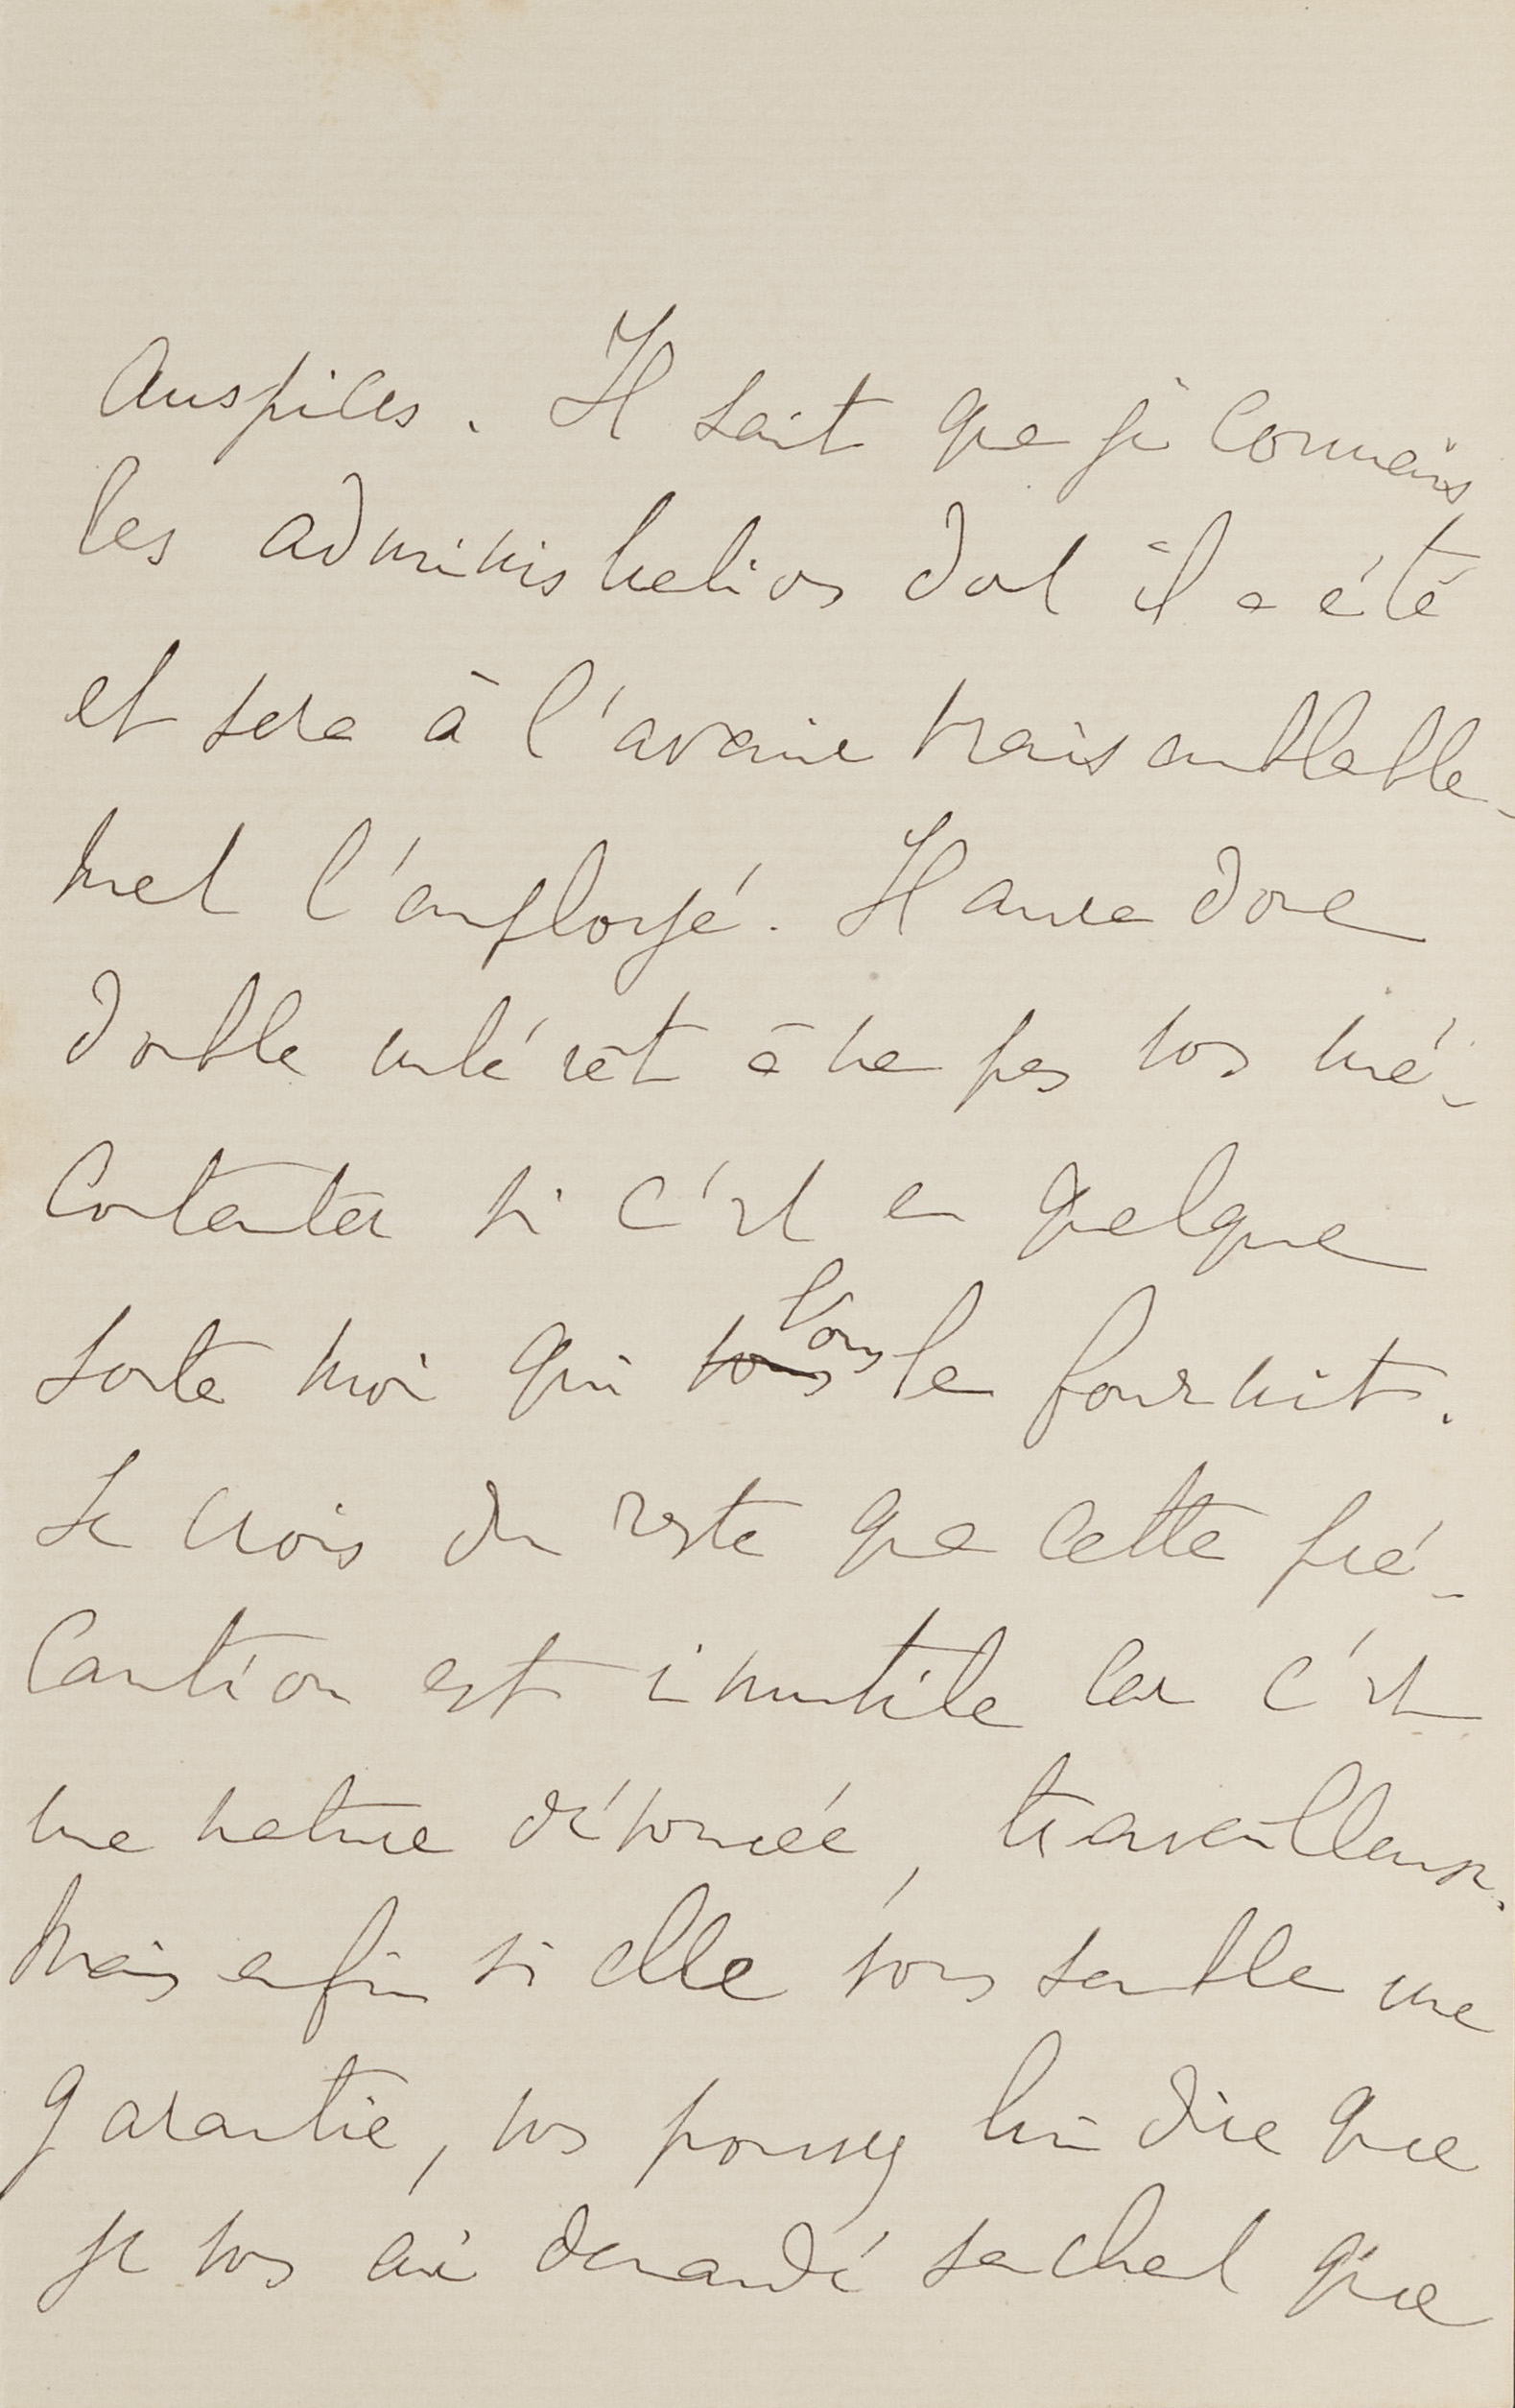 auspices. Il sait que je connais
les administrations dont il a été
et sera à l'avenir vraisemblable-
ment l'employé. Il aura donc
double intérêt à ne pas vous mé-
contenter si c'est en quelque
sorte moi qui vous vous le fournit.
Je crois du reste que cette pré-
caution est inutile car c'est
une nature dévouée, travailleuse.
Mais enfin si elle vous semble une
garantie, vous pouvez lui dire que
je vous ai demandé sachant que